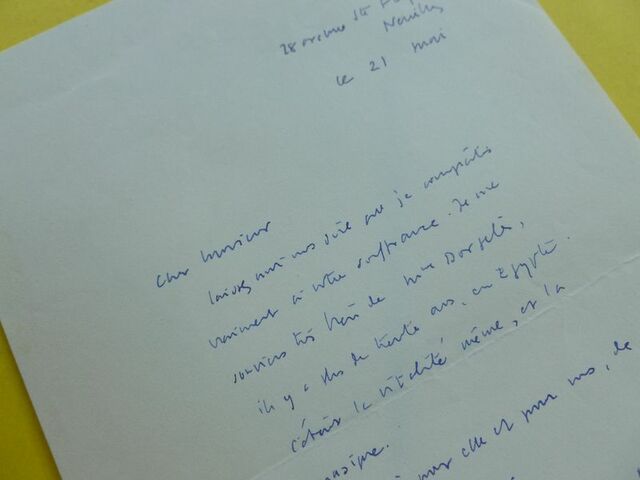 28 avenue Ste
Neuilly
le 21 mai
Cher Monsieur
laissez moi vous dire que je compatis
vraiment à votre souffrance. Je me
souviens très bien de Mme Borselé,
il y a plus de trente ans, en Egypte.
C'était la vitalité même, et la
musique.
pour elle et pour vous, de